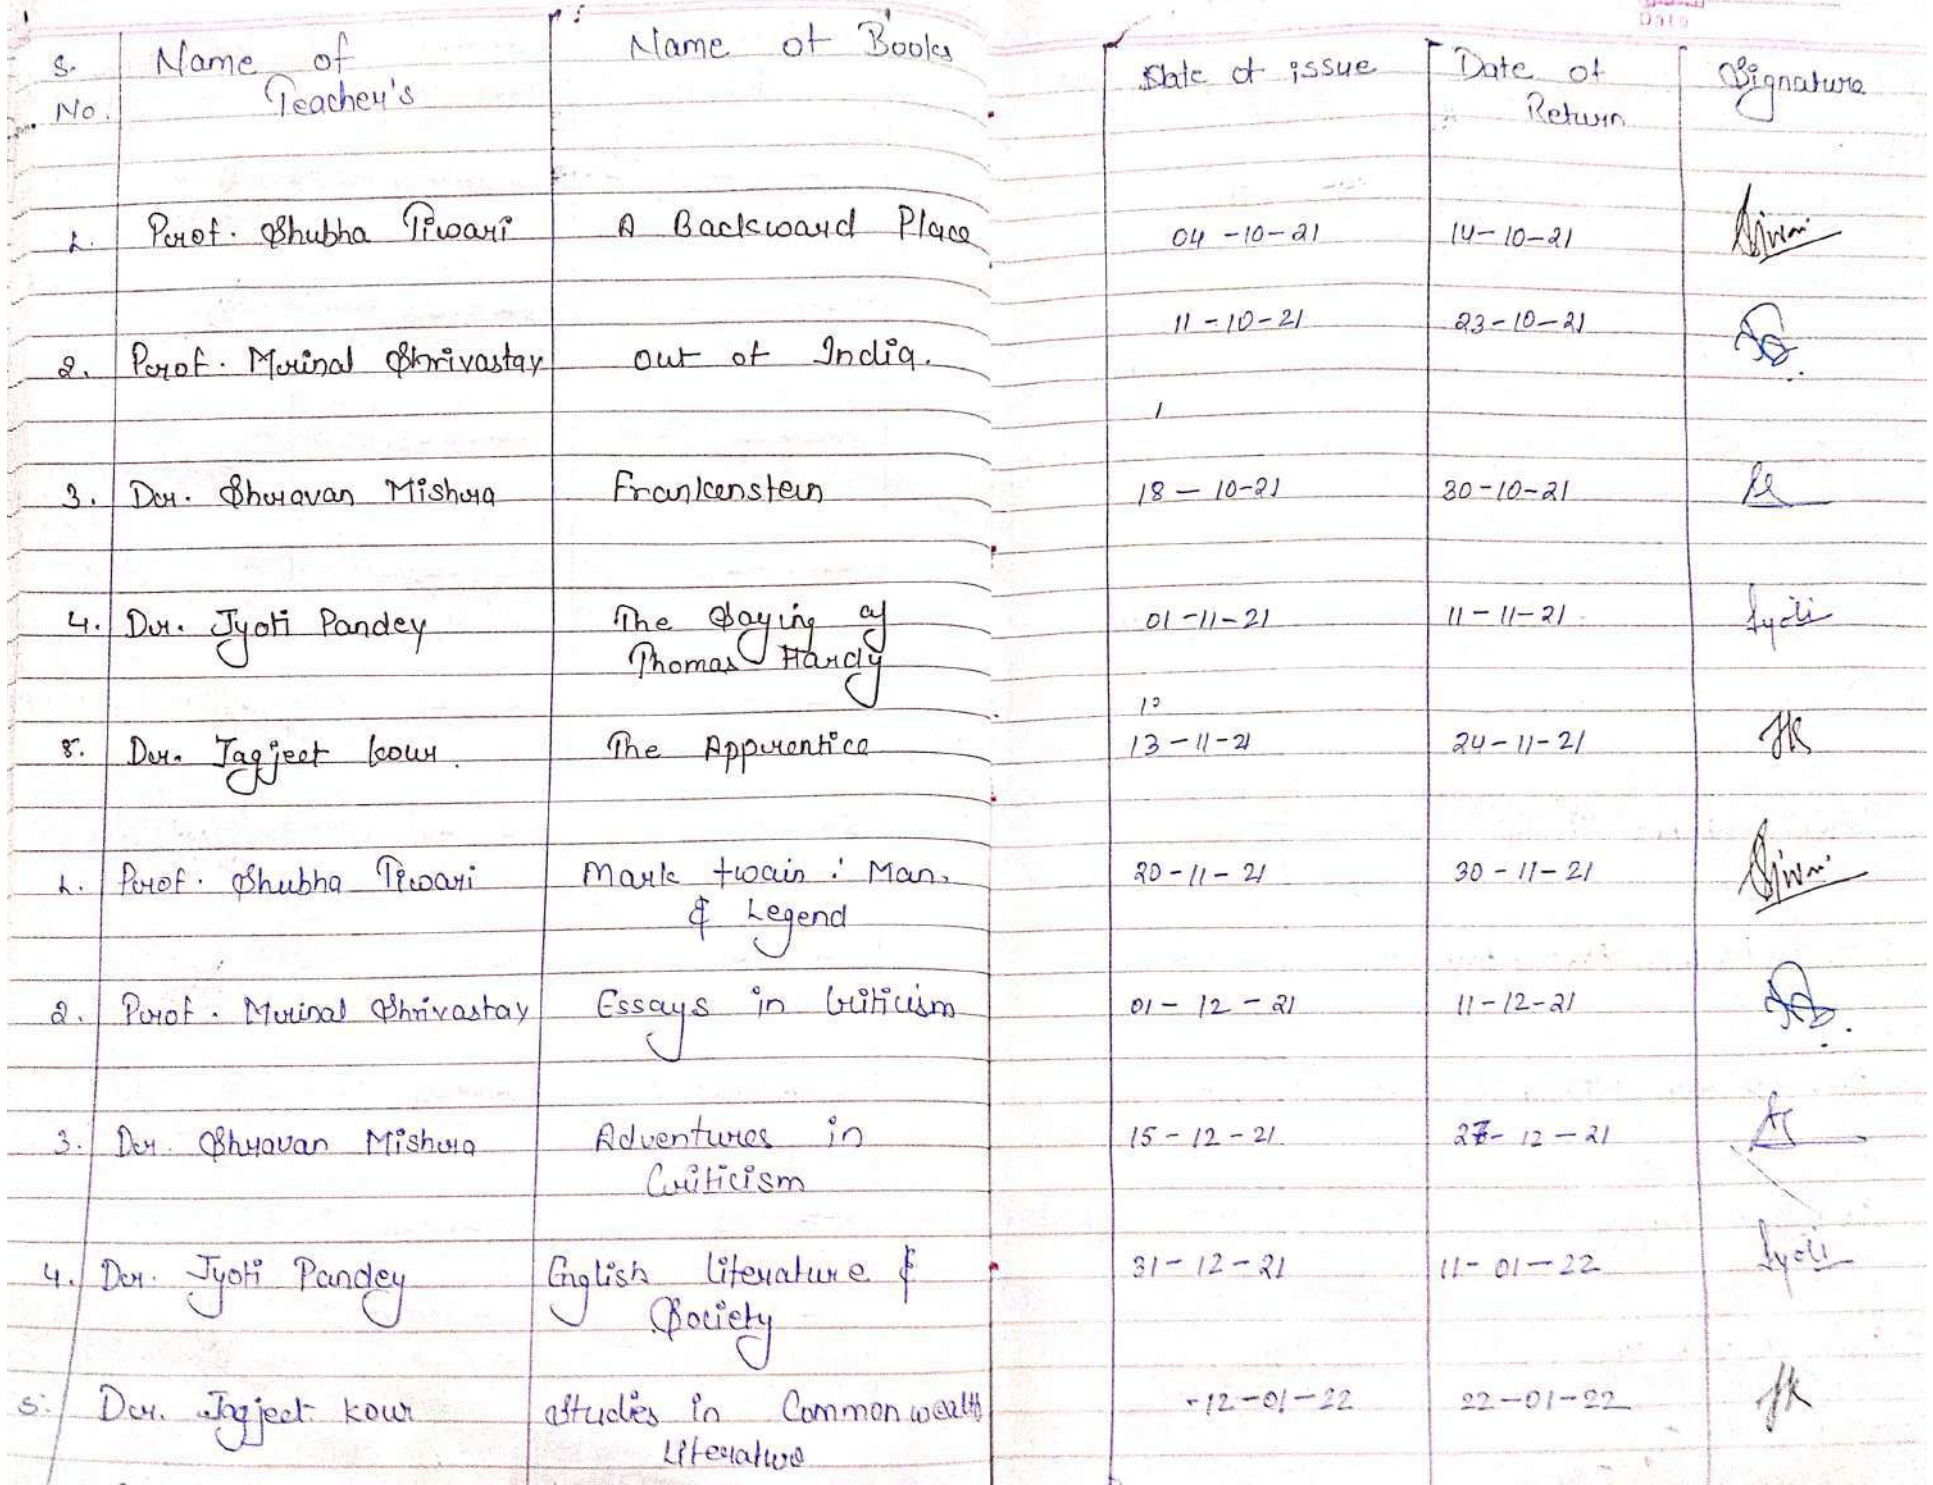 Date
S. No. Name of Teacher's Name of Books Date of issue Date of Return Signature
1. Prof. Shubha Tiwari A Backward Place 04-10-21 14-10-21
2. Prof. Mrinal Shrivastav out of India. 11-10-21 23-10-21
3. Dr. Shravan Mishra Frankenstein 18-10-21 30-10-21
4. Dr. Jyoti Pandey The Saying of 01-11-21 11-11-21 Jyoti
Thomas Hardy
5. Dr. Jagjeet kour. The Apprentice 13-11-21 24-11-21 JK
1. Prof. Shubha Tiwari Mark twain : Man. 20-11-21 30-11-21
& Legend
2. Prof. Mrinal Shrivastav Essays in Criticism 01-12-21 11-12-21
3. Dr. Shravan Mishra Adventures in 15-12-21 27-12-21
Criticism
4. Dr. Jyoti Pandey English literature & 31-12-21 11-01-22 Jyoti
Society
5. Dr. Jagjeet kour Studies in Commonwealth 12-01-22 22-01-22 JK
Literature